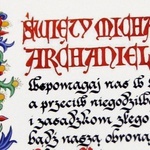 ŚWIĘTY MICHA
ARCHANIEL
Wspomagaj nas w
a przeciw niegodziw
i zasadzkom złego
bądź naszą obroną